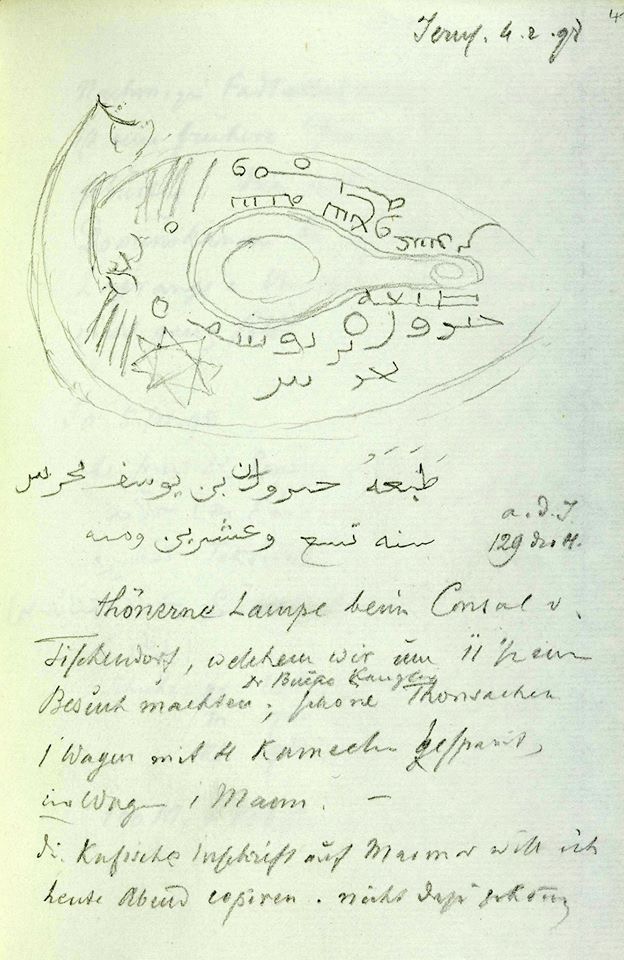 Jerus. 4. 2. 98
طَبَعَهُ بن يوسف
سنه تسع وعشرين ومىه
a. d. J.
129 der H.
thönerne Lampe beim Consul v.
Tischendorf, welchem wir um 11 ½ einen
Dr Kanzler
Besuch machten; schöne Thonsachen
1 Wagen mit 4 Kameelen gespannt,
im Wagen 1 Mann. —
die Kufische Inschrift auf Marmor will ich
heute Abend copiren. nicht dazu gekommen